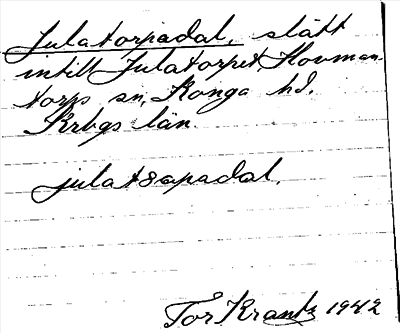 Julatorpadal, slått
intill Julatorpet, Hovman-
torps sn, Konga hd.
Krbgs län.
julatorpadal.
Tor Krantz 1942